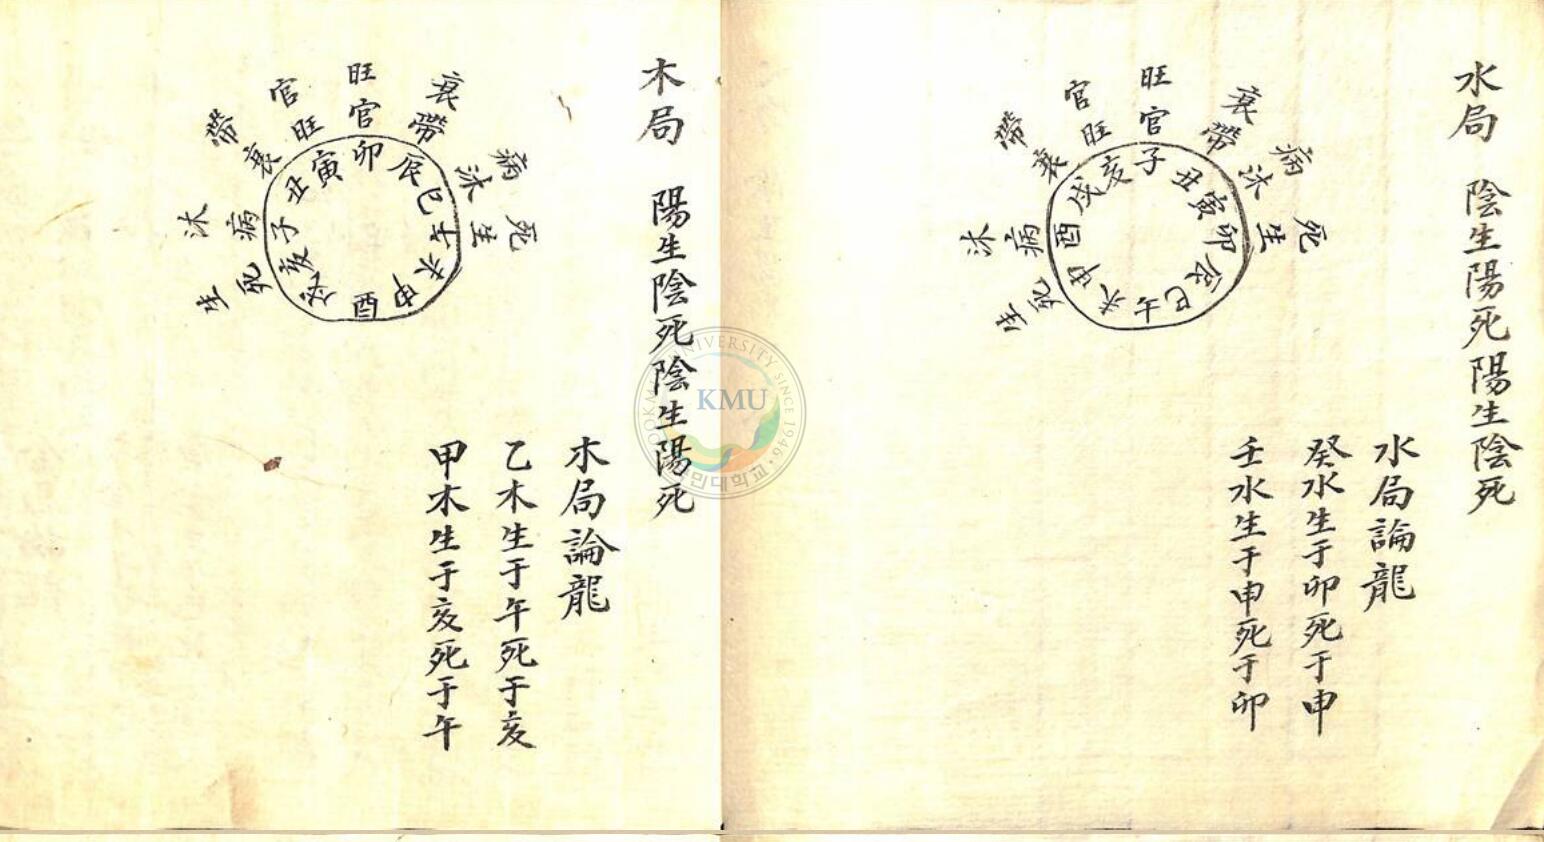 水局 陰生陽死陽生陰死
生沐帶官旺衰病死
死病衰旺官帶沐生
子丑寅卯辰巳午未申酉戌亥
水局論龍
癸水生于卯死于申
壬水生于申死于卯
木局 陽生陰死陰生陽死
生沐帶官旺衰病死
死病衰旺官帶沐生
子丑寅卯辰巳午未申酉戌亥
木局論龍
乙木生于午死于亥
甲木生于亥死于午
KOOKMIN UNIVERSITY SINCE 1946
KMU
국민대학교